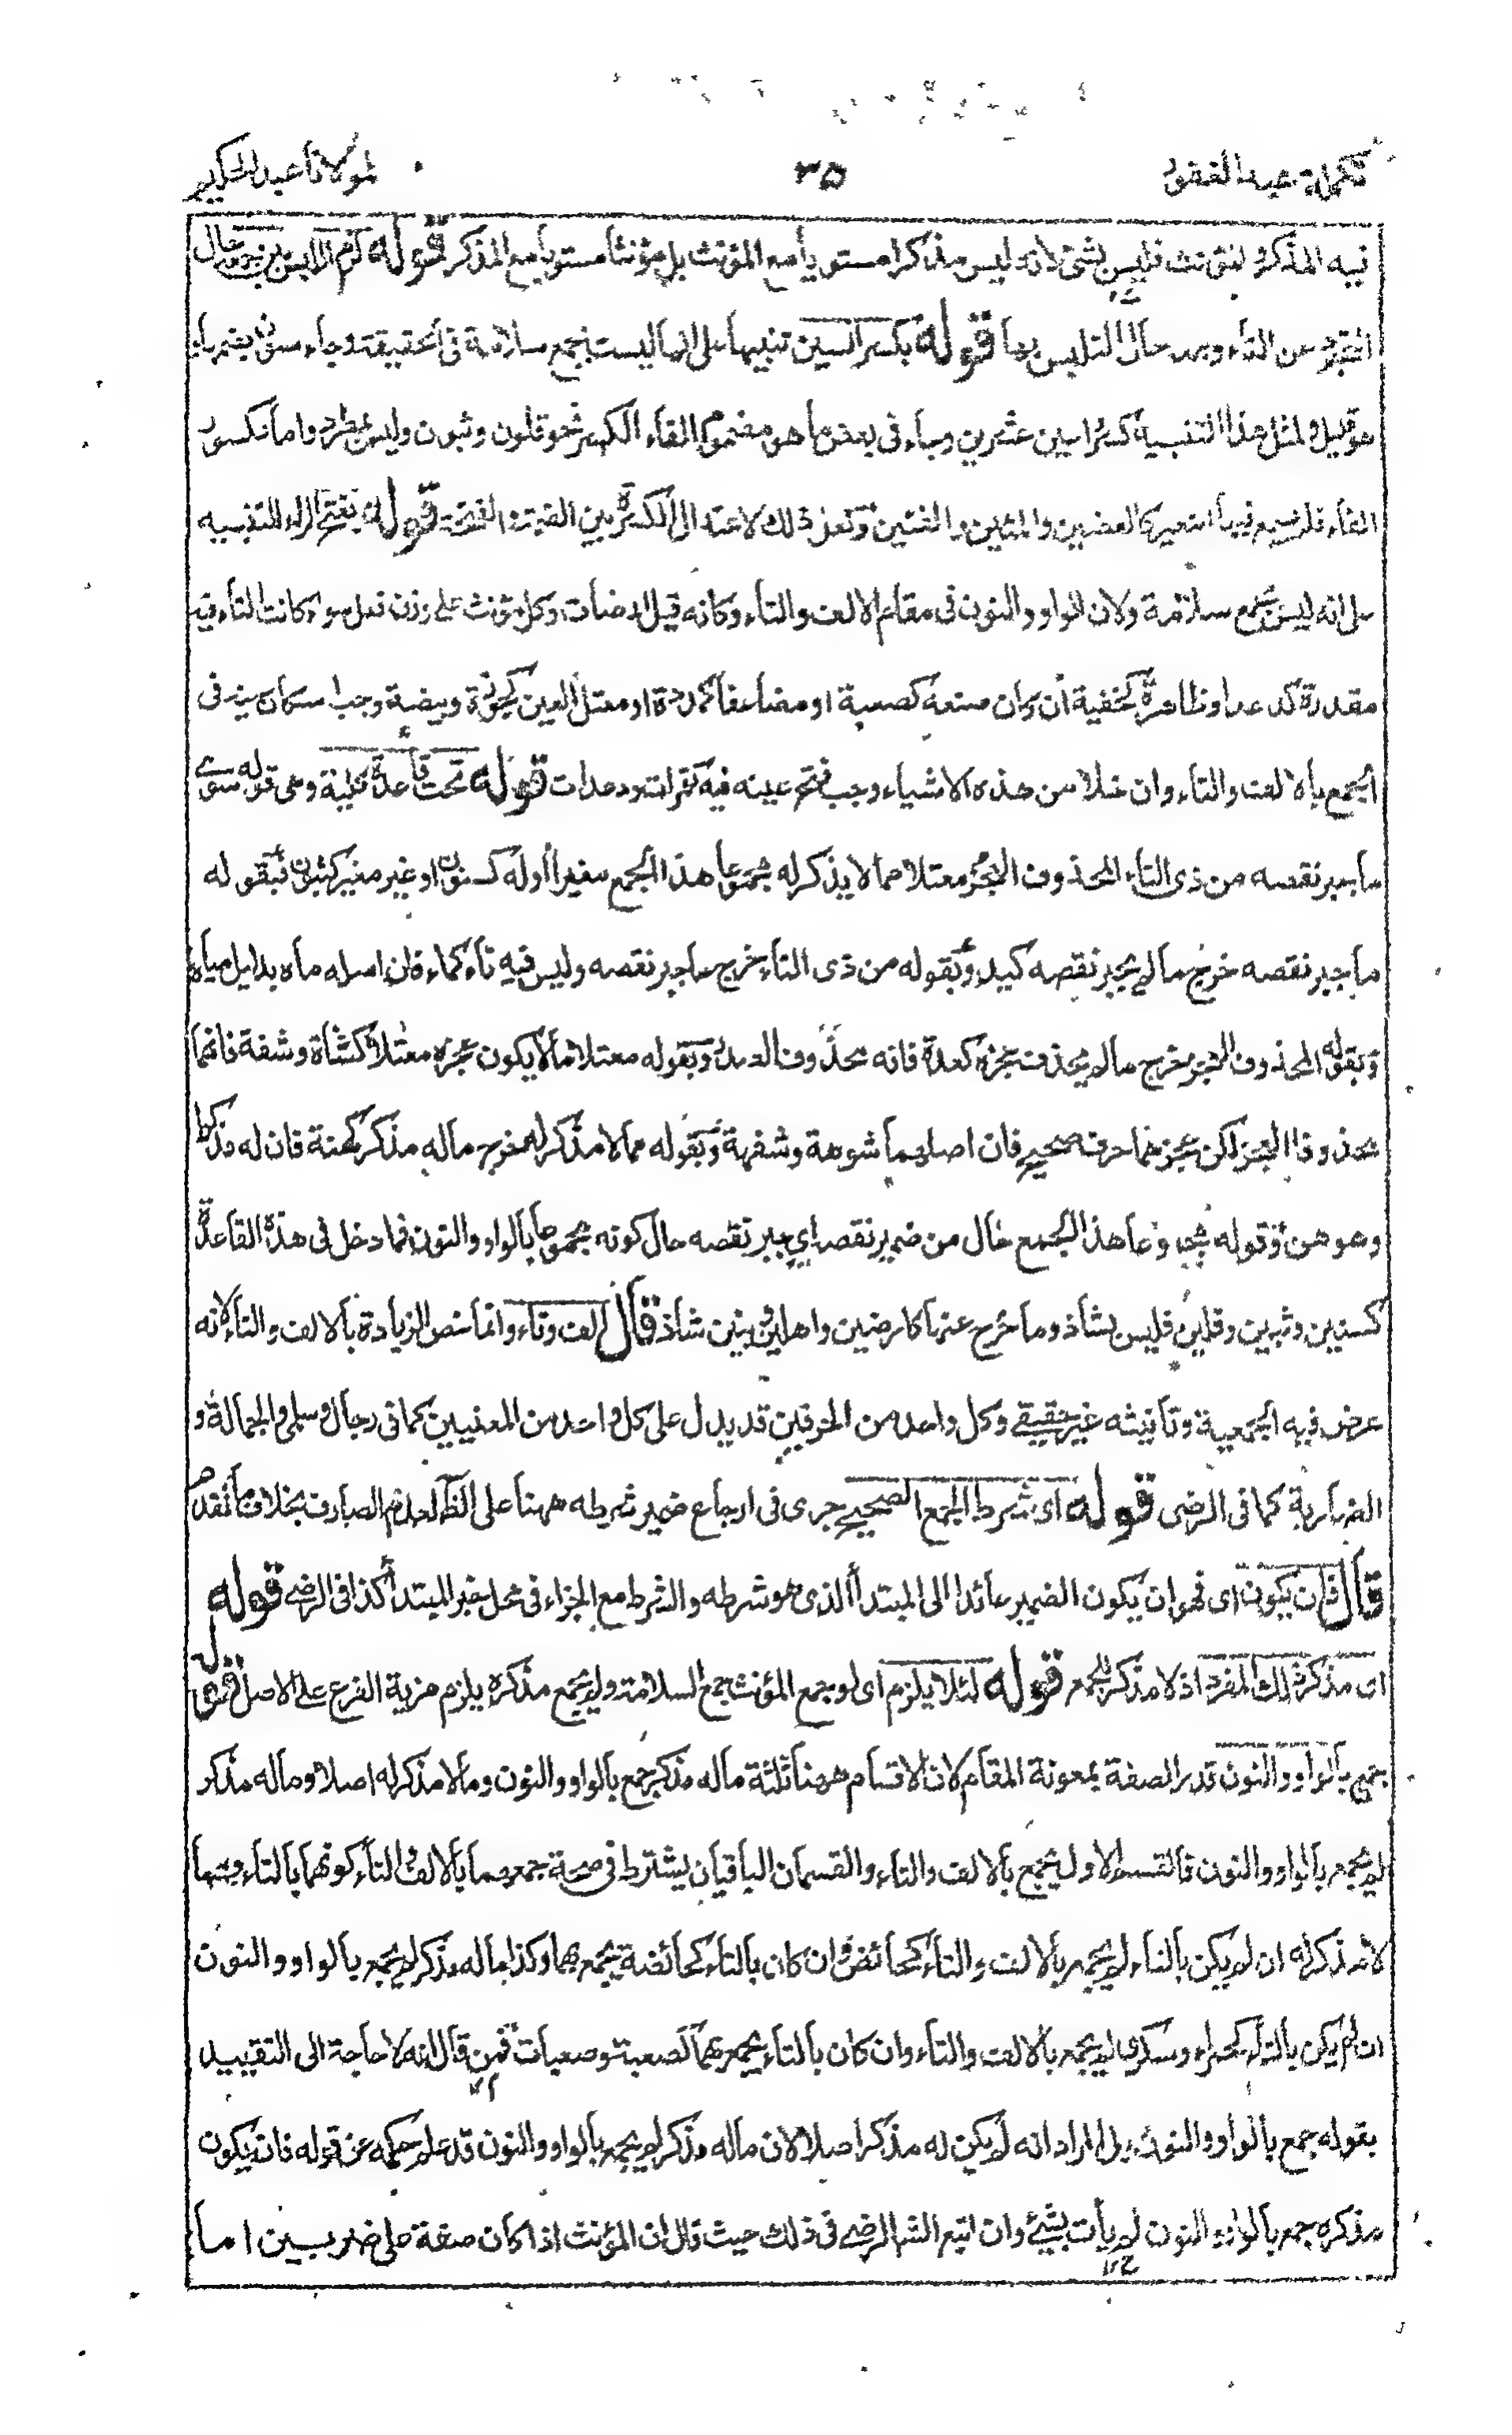 تكملة عبد الغفور ٣٥ لمولانا عبد الحكيم
فيه المذكر والمؤنث فليس بشئ لانه ليس مذكرا مستويا مع المؤنث بل مؤنثا مستويا مع المذكر قوله
التجرد عن التاء وبعد حال التلبس بها قوله بكسر السين تنبيها على انها ليست بجمع سلامة في الحقيقة وجاء سنون بضمها
هو قليل ولمثل هذا التنبيه كسروا سين عشرين وجاء في بعض ما هو مضموم الفاء الكسر نحو قلون وثبون وليس بمطرد واما مكسور
الفاء فلم يسمع فيها التغيير كالعضين والمئين والفئين ولعل ذلك لاعتدال الكسرة بين الضمة والفتحة قوله بفتح الراء للتنبيه
على انه ليس بجمع سلامة ولان الواو والنون في مقام الالف والتاء وكانه قيل ارضات وكل مؤنث على وزن فعل سواء كانت التاء فيه
مقدرة كدعد او ظاهرة كجفنة ان كان صفة كصعبة او مضاعفا كمدة او معتل العين كجوزة وبيضة وجب اسكان عينه في
الجمع بالالف والتاء وان خلا من هذه الاشياء وجب فتح عينه فيه كتمرات ودعدات قوله تحت قاعدة كلية وهي قوله سوى
ما جبر نقصه من ذي التاء المحذوف العجز معتلا مما لا يذكر له مجموعا هذا الجمع مغيرا اوله كسنون او غير مغير كثبون فبقوله
ما جبر نقصه خرج ما لم يجبر نقصه كيد وبقوله من ذى التاء خرج ما جبر نقصه وليس فيه تاء كماء فان اصله ماه بدليل مياه
وبقوله المحذوف العجز خرج ما لم يحذف عجزه كعدة فانه محذوف الصدر وبقوله معتلا ما لا يكون عجزه معتلا كشاة وشفة فانهما
محذوفا العجز لكن عجزهما حرف صحيح فان اصلهما شوهة وشفهة وبقوله مما لا مذكر له خرج ما له مذكر كهنة فان له مذكرا
وهو هن وقوله مجموعا هذا الجمع حال من ضمير نقصه اي جبر نقصه حال كونه مجموعا بالواو والنون فما دخل في هذه القاعدة
كسنين وثبين وقلين فليس بشاذ وما خرج عنها كارضين واهلين وبنين شاذ قال الف وتاء وانما خص الزيادة بالالف والتاء لانه
عرض فيه الجمعية وتانيثه غير حقيقي وكل واحد من الحرفين قد يدل على كل واحد من المعنيين كما في رجال وسلمى والجمالة و
الضاربة كما في الرضى قوله اى شرط الجمع الصحيح جرى في ارجاع ضمير شرطه ههنا على الظاهر لعدم الصارف بخلاف ما تقدم
قال فان يكون اى فهو ان يكون الضمير عائدا الى المبتدأ الذى هو شرطه والشرط مع الجزاء في محل خبر المبتدأ كذا في الرضى قوله
اى مذكر ذلك المفرد اذ لا مذكر للجمع قوله لئلا يلزم اى لو جمع المؤنث بجمع السلامة ولم يجمع مذكره يلزم مزية الفرع على الاصل قوله
جمع بالواو والنون قدر الصفة بمعونة المقام لان الاقسام ههنا ثلثة ما له مذكر جمع بالواو والنون وما لا مذكر له اصلا وما له مذكر
لم يجمع بالواو والنون فالقسم الاول يجمع بالالف والتاء والقسمان الباقيان يشترط في صحة جمعهما بالالف والتاء كونهما بالتاء فما
لا مذكر له ان لم يكن بالتاء لم يجمع بالالف والتاء كحائض وان كان بالتاء كحائضة يجمع بهما وكذا ما له مذكر لم يجمع بالواو والنون
ان لم يكن بالتاء كحمراء وسكرى لم يجمع بالالف والتاء وان كان بالتاء يجمع بهما كصعبة وصعبات فمن قال انه لا حاجة الى التقييد
بقوله جمع بالواو والنون بل المراد انه لم يكن له مذكر اصلا لان ما له مذكر لم يجمع بالواو والنون قد علم حكمه عن قوله فان يكون
مذكره جمع بالواو والنون لم يأت بشئ وان اتبع الشارح الرضى في ذلك حيث قال ان المؤنث اذا كان صفة على ضربين اما